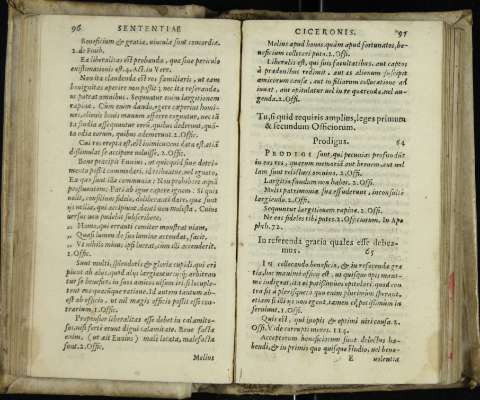 96 SENTENTIAE
Beneficium & gratia, vincula sunt concordiæ.
2. de Finib.
Ea liberalitas est probanda, quæ sine periculo
existimationis est. 4. Act. in Verr.
Non ita claudenda est res familiaris, ut eam
benignitas aperire non possit; nec ita reseranda,
ut pateat omnibus. Sequuntur enim largitionem
rapinæ. Cum enim dando, egere cœperint homines,
alienis bonis manum afferre coguntur, nec
studia assequuntur eorū, quibus dederunt, quanta
odia eorum, quibus ademerunt. 2. Offic.
Cui res erepta est, est inimicus: cui data est, etiā
dissimulat se accipere voluisse. 2. Offic.
Bene præcipit Ennius, ut quicquid sine detrimento
possit commodari, id tribuatur, vel ignoto.
Ex quo sunt illa communia: Non prohibere aqua
profluente: Pati ab igne capere ignem: Si quis
velit, consilium fideli, deliberanti dare, quæ sunt
iis utilia, qui accipiunt, danti non molesta. Cuius
versus non pudebit subscribere.
Homo, qui erranti comiter monstrat viam,
Quasi lumen de suo lumine accendat, facit,
Ut nihilo minus ipsi luceat, cum illi accenderit.
2. Offic.
Sunt multi, splendoris & gloriæ cupidi, qui eripiunt
ab aliis, quod aliis largiantur:
se beneficos in suos amicos visum iri, si locupletent
eos quacunque ratione. Id autem tantum abest
ab officio, ut nil magis officio possit esse contrarium.
1. Offic.
Propensior liberalitas esse debet in calamitosos,
nisi fortè erunt digni calamitate. Bene facta
enim, (ut ait Ennius) male locata, malefacta
sunt. 2. Offic.
Melius
CICERONIS. 97
Melius apud bonos, quàm apud fortunatos, beneficium
collocari puto. 2. Offi.
Liberalis est, qui suis facultatibus, aut captos
à prædonibus redimit, aut æs alienum suscipit
amicorum causa, aut in filiarum collocatione adiuvat,
aut opitulatur vel in re quærenda, vel augenda.
2. Offi.
Tu, si quid requiris amplius, leges primum
& secundum Officiorum.
Prodigus. 64
PRODIGI sunt, qui pecunias profundūt
in eas res, quarum memoriā aut brevem, aut nullam
sunt relicturi omnino. 2. Offi.
Largitio fundum non habet. 2. Offi.
Multi patrimonia sua effuderunt, inconsulte
largiendo. 2. Offi.
Sequuntur largitionem rapinæ. 2. Offic.
72.
In referenda gratia quales esse debeamus.
65
IN collocando beneficio, & in referenda gratia,
hoc maximè officij est, ut quisque opis maxime
indigeat, ita ei potissimum opitulari: quod contra
fit à plerisque: à quo enim plurimum sperant,
etiam si ille iis non eget, tamen ei potissimum inserviunt.
1. Offi.
causa. 2.
Offi. V. de corruptis mores. 114.
Acceptorum beneficiorum sunt delectus habendi,
& in primis quo quisque studio, vel bene-
E volentia